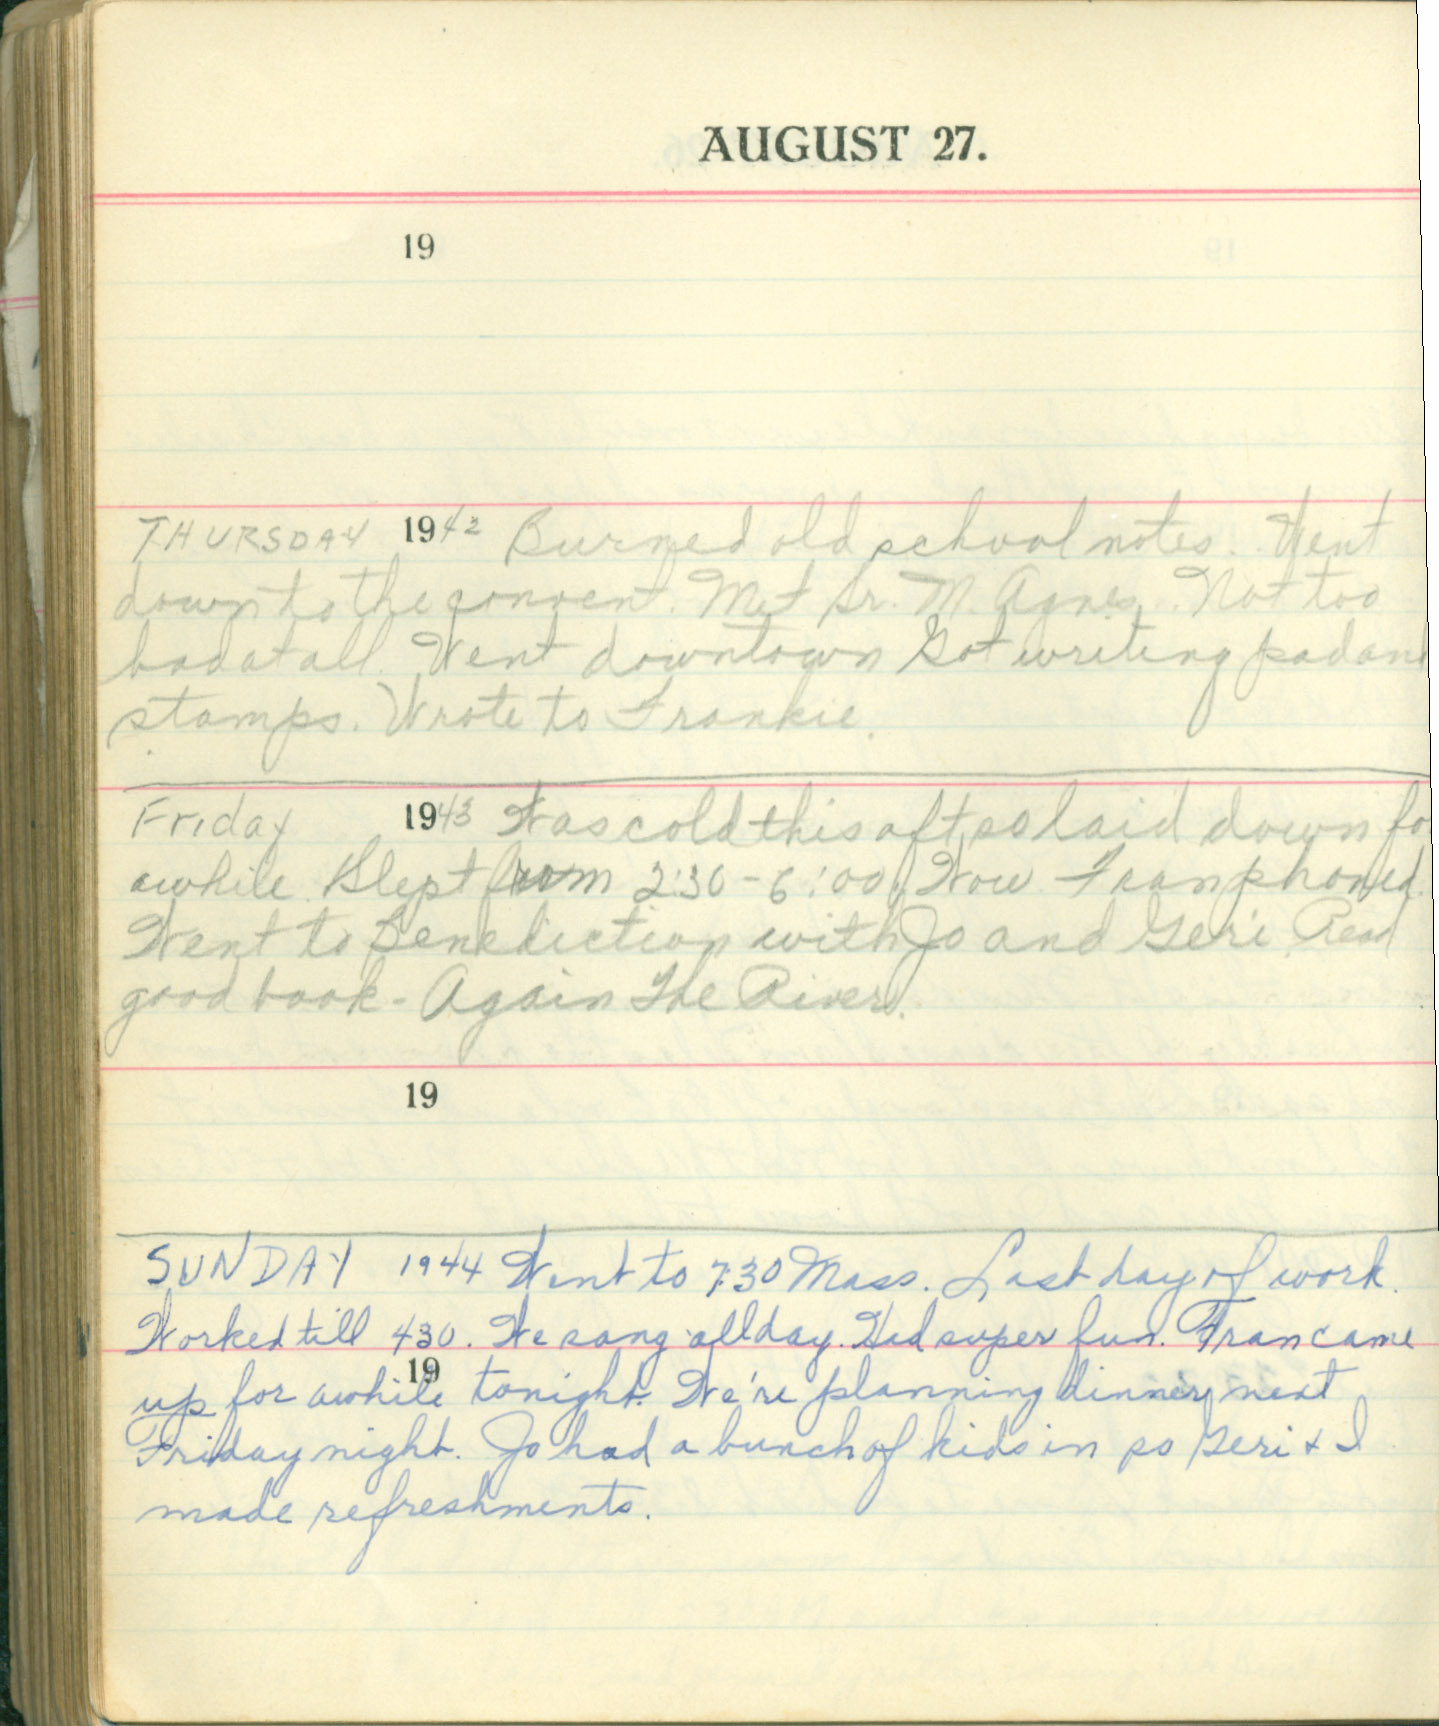 AUGUST 27.
19
THURSDAY 1942 Burned old school notes. Went
down to the convent. Met Sr. M. Agnes. Not too
bad at all. Went downtown Got writing pad and
stamps. Wrote to Frankie.
Friday 1943 Was cold this aft so laid down fo
awhile. Slept from 2:30-6:00. Wow. Fran phoned.
Went to Benediction with Jo and Geri. Read
good book - Again The River.
19
SUNDAY 1944 Went to 7:30 Mass. Last day of work.
Worked till 430. We sang all day. Had super fun. Fran came
19
up for awhile tonight. We're planning dinner next
Friday night. Jo had a bunch of kids in so Geri & I
made refreshments.